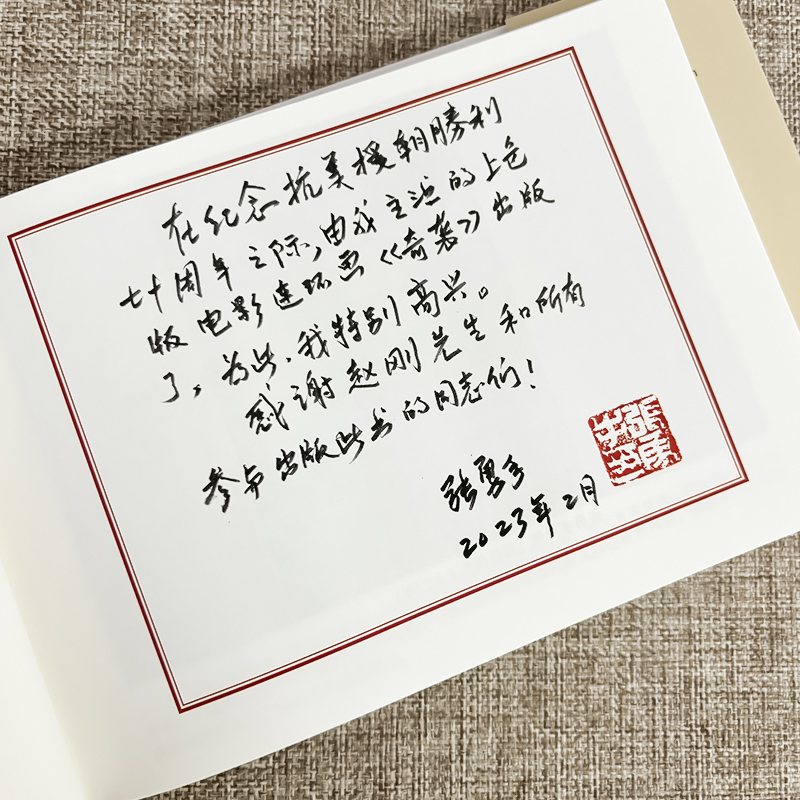 在纪念抗美援朝勝利
七十周年之际,由我主演的上色
版电影连环画《奇袭》出版
了,为此,我特别高兴。
感谢赵刚先生和所有
参与出版此书的同志们!
张勇手
2023年2月